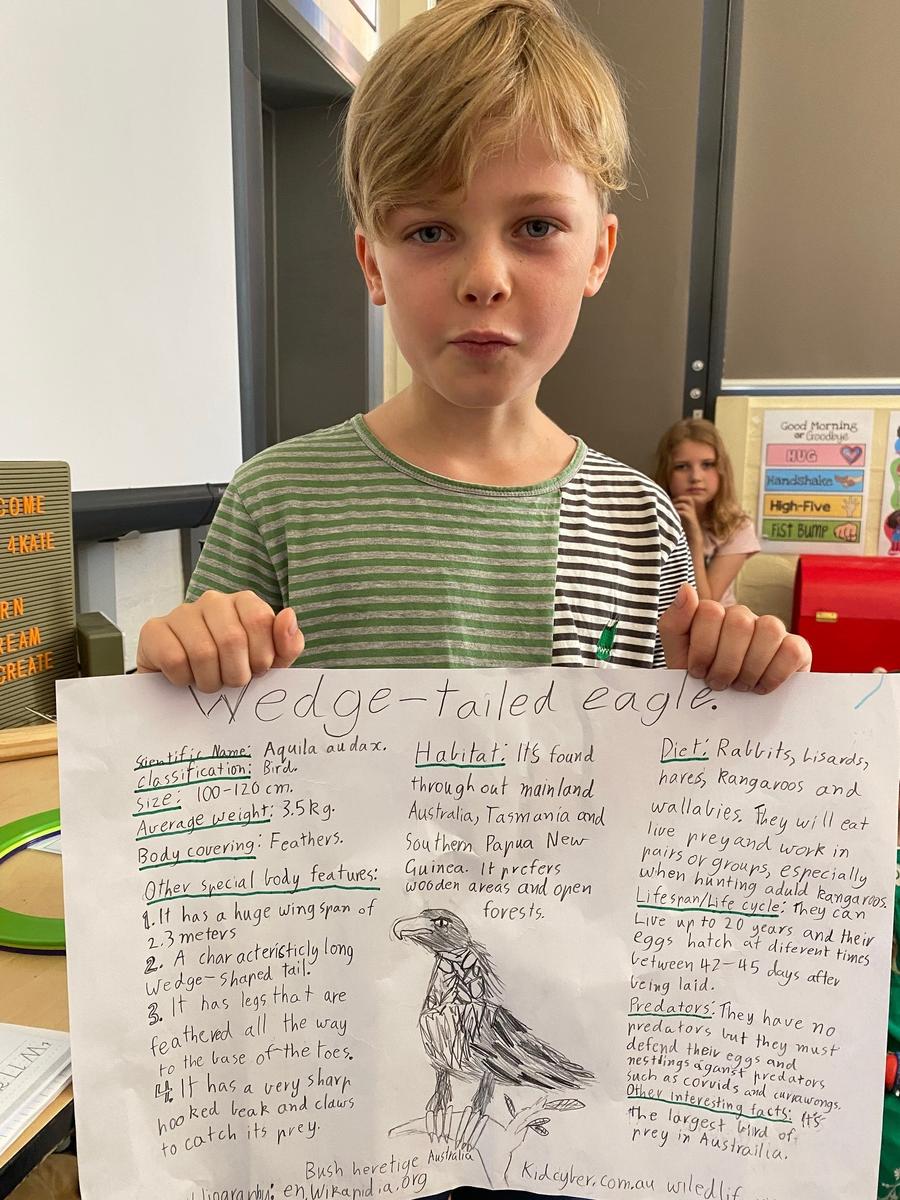 COME
4KATE
RN
EAM
CREATE
Good Morning
or Goodbye
HUG
Handshake
High-Five
Fist Bump
Wedge-tailed eagle.
Scientific Name: Aquila audax.
Classification: Bird.
Size: 100-120 cm.
Average weight: 3.5kg.
Body covering: Feathers.
Other special body features:
1. It has a huge wingspan of
2.3 meters
2. A characteristicly long
wedge-shaped tail.
3. It has legs that are
feathered all the way
to the base of the toes.
4. It has a very sharp
hooked beak and claws
to catch its prey.
Habitat: It's found
throughout mainland
Australia, Tasmania and
Southern Papua New
Guinea. It prefers
wooden areas and open
forests.
Diet: Rabbits, Lisards,
hares, Kangaroos and
wallabies. They will eat
live prey and work in
pairs or groups, especially
when hunting aduld kangaroos.
Lifespan/Life cycle: They can
Live up to 20 years and their
eggs hatch at diferent times
between 42-45 days after
being laid.
Predators: They have no
predators but they must
defend their eggs and
nestlings against predators
such as corvids and currawongs.
Other interesting facts: It's
the largest bird of
prey in Austrailia.
Bush heretige Australia
liography: en.Wikapidia.org
Kidcyber.com.au wiledlif